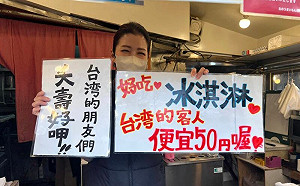 台湾的朋友們
夭壽好呷!!
好吃♥冰淇淋♥
台湾的客人
便宜50円喔♥